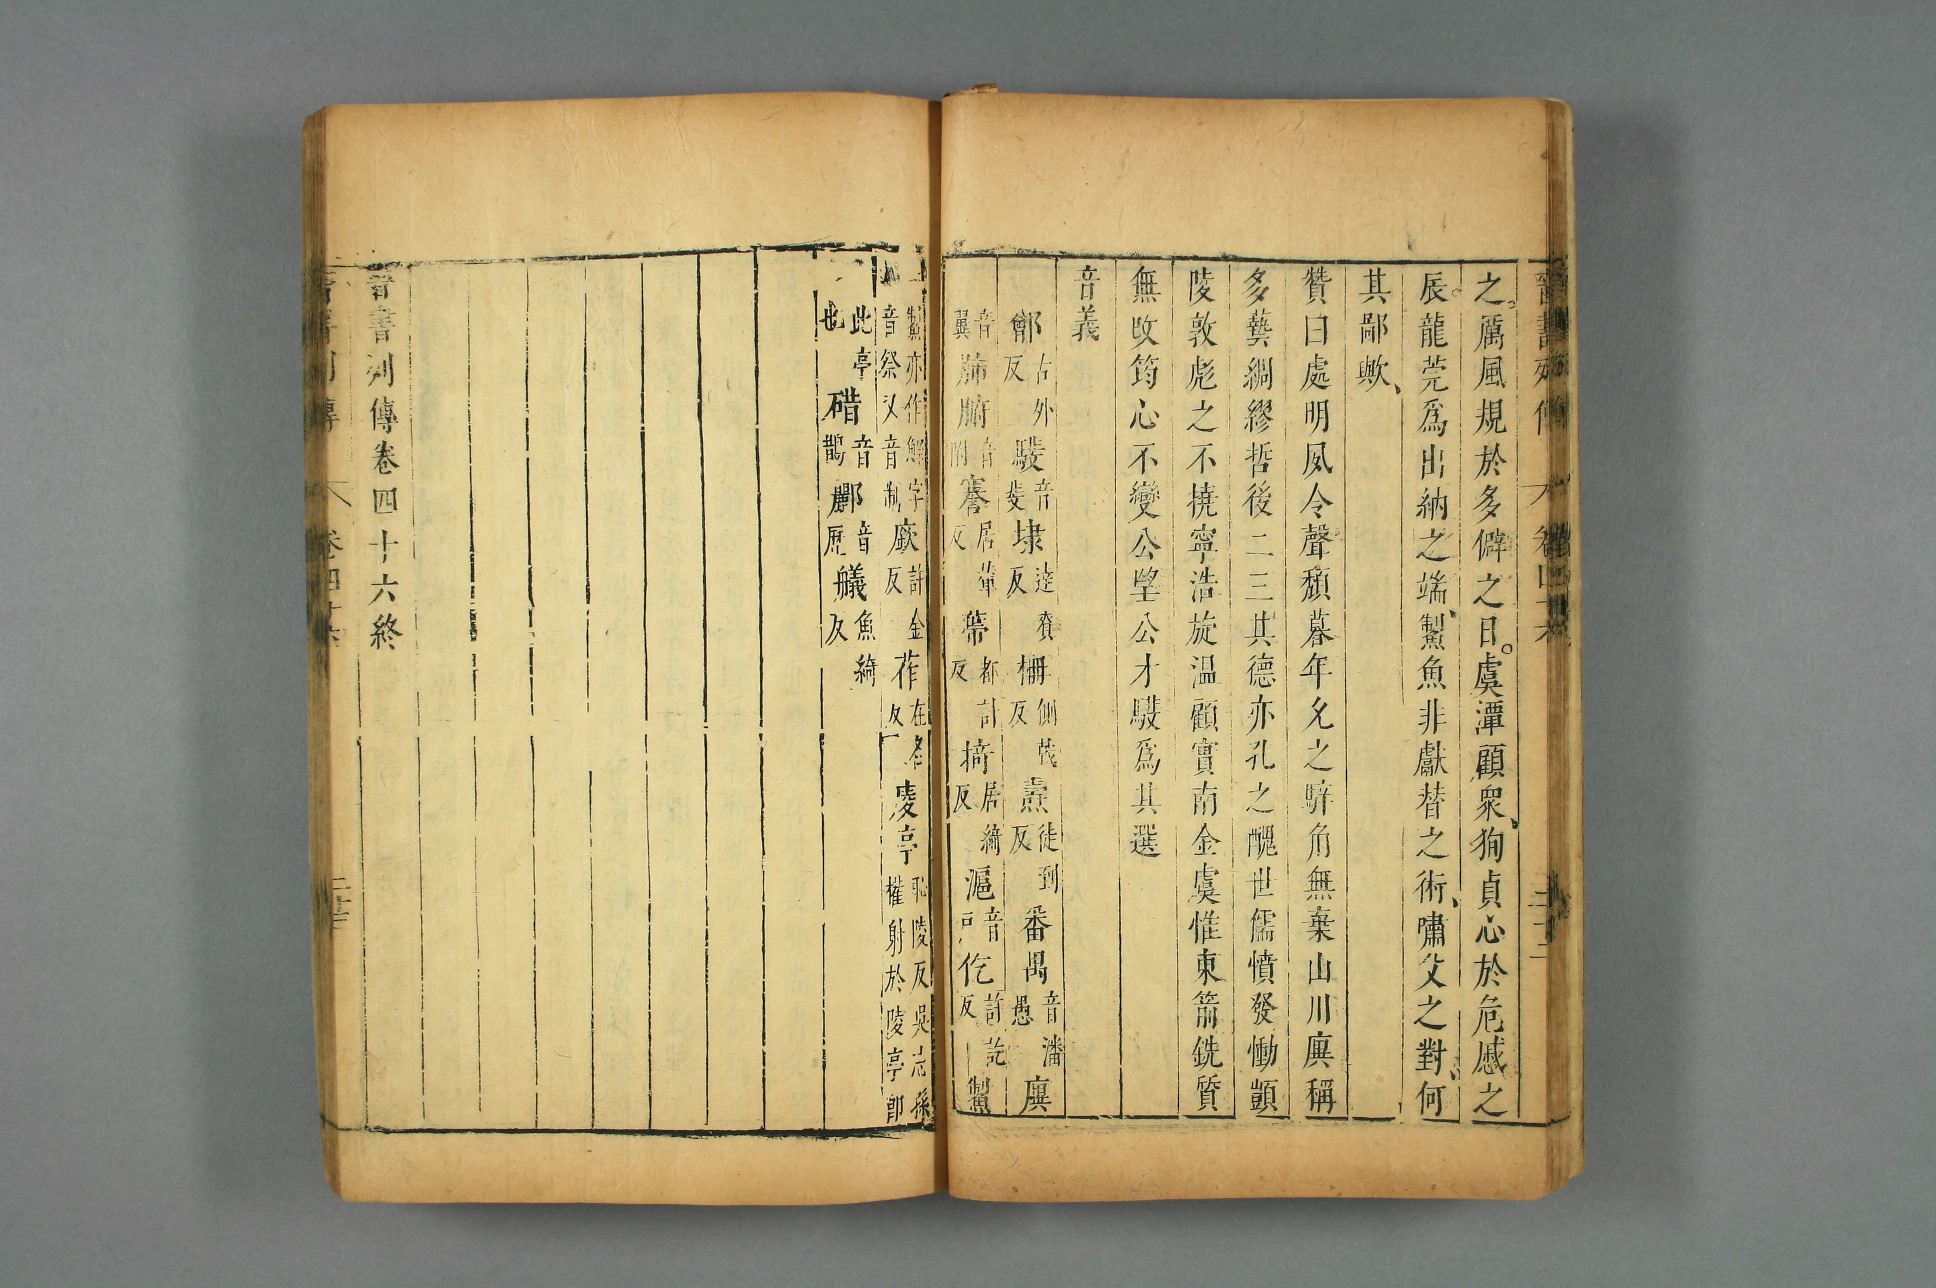 之厲風規於多僻之日虞潭顧衆徇貞心於危慼之
辰龍莞爲出納之端鮆魚非獻替之術嘯父之對何
其鄙歟
贊曰處明夙令聲頹暮年允之騂角無棄山川廙稱
多藝綢繆哲後二三其德亦孔之醜世儒憤發慟顗
陵敦彪之不撓寧浩旋溫顧實南金虞惟東箭銑質
無攺筠心不變公望公才騣爲其選
音義
鄶古外反騣音叜埭達賚反柵側戟反燾徒到反番禺音潘愚廙
音翼肺腑音附謇居輦反蔕都計反掎居綺反滬音戸仡許訖反鮆
鮆亦作鱭字音祭又音制廞許金反莋在各反庱亭恥陵反吳志孫權射於庱亭卽
此亭也碏音鵲酈音歷艤魚綺反
晉書列傳卷四十六終